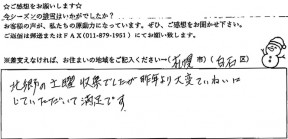 ☆ご感想をお願いします☆
今シーズンの除雪はいかがでしたか？
お客様の声が、私達の原動力になっています。ぜひ、ご感想をお聞かせ下さい。
ご返信は郵送またはFAX(011-879-1951)にてお願い致します。
※差支えなければ、お住まいの地域をご記入ください→(札幌市)(白石区)
北郷の土曜収集でしたが昨年より大変ていねいに
していただいて満足です。